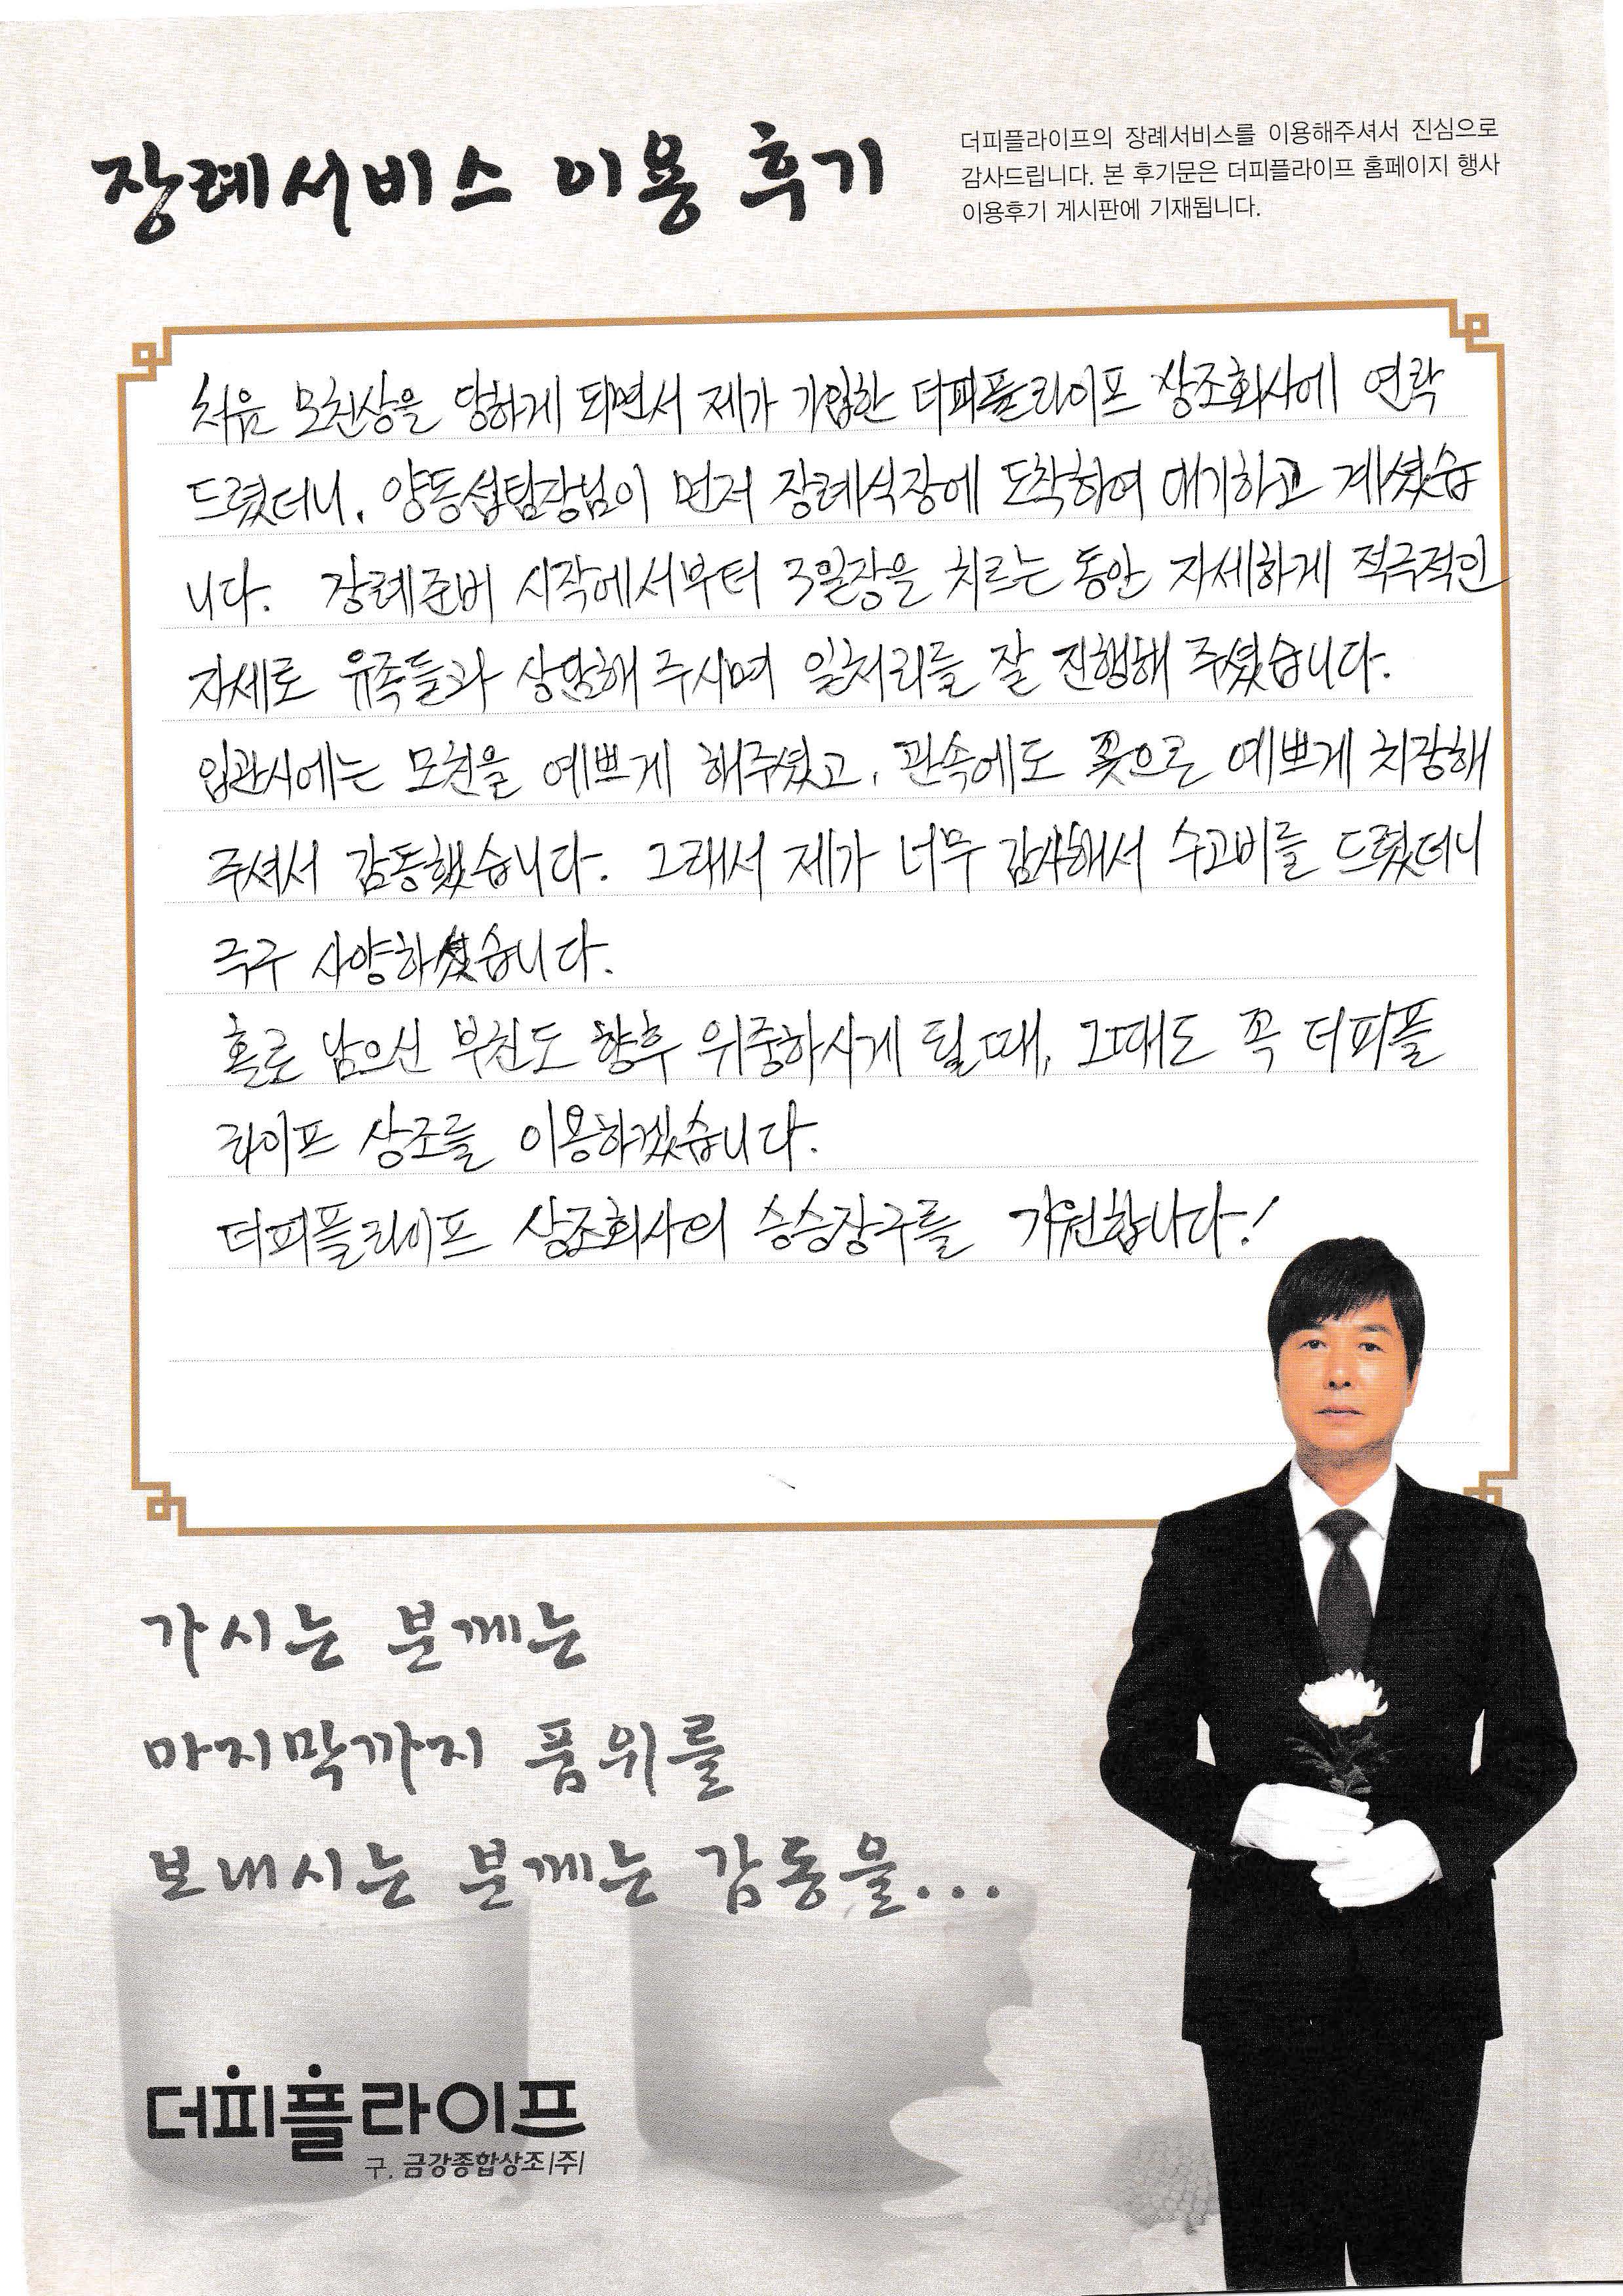 장례서비스 이용 후기
더피플라이프의 장례서비스를 이용해주셔서 진심으로
감사드립니다. 본 후기문은 더피플라이프 홈페이지 행사
이용후기 게시판에 기재됩니다.
처음 모친상을 당하게 되면서 제가 가입한 더피플라이프 상조회사에 연락
드렸더니, 양동섭팀장님이 먼저 장례식장에 도착하여 대기하고 계셨습
니다. 장례준비 시작에서부터 3일장을 치르는 동안 자세하게 적극적인
자세로 유족들과 상담해 주시며 일처리를 잘 진행해 주셨습니다.
입관시에는 모친을 예쁘게 해주셨고, 관속에도 꽃으로 예쁘게 치장해
주셔서 감동했습니다. 그래서 제가 너무 감사해서 수고비를 드렸더니
극구 사양하셨습니다.
홀로 남으신 부친도 향후 위중하시게 될 때, 그때도 꼭 더피플
라이프 상조를 이용하겠습니다.
더피플라이프 상조회사의 승승장구를 기원합니다!
가시는 분께는
마지막까지 품위를
보내시는 분께는 감동을...
더피플라이프
구. 금강종합상조|주|